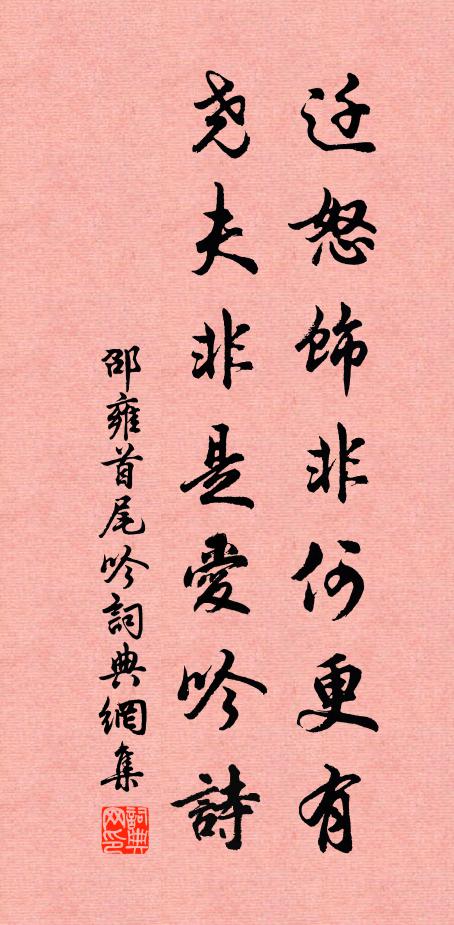 迁怒饰非何更有
尧夫非是爱吟詩
邵雍首尾吟詞典網集
詞典网印